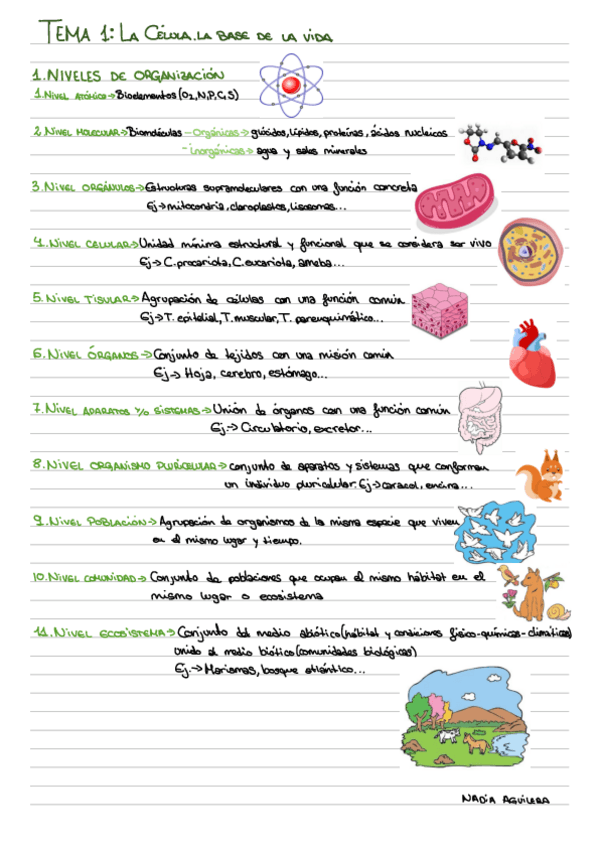 TEMA 1: LA CÉLULA. LA BASE DE LA VIDA
1. NIVELES DE ORGANIZACIÓN
1. NIVEL ATÓMICO → Bioelementos (O2, N, P, C, S)
2. NIVEL MOLECULAR → Biomoléculas - Orgánicas → glúcidos, lípidos, proteínas, ácidos nucleicos
- Inorgánicas → agua y sales minerales
3. NIVEL ORGÁNULOS → Estructuras supramoleculares con una función concreta
Ej → mitocondria, cloroplastos, lisosomas...
4. NIVEL CELULAR → Unidad mínima estructural y funcional que se considera ser vivo
Ej → C. procariota, C. eucariota, ameba...
5. NIVEL TISULAR → Agrupación de células con una función común
Ej → T. epitelial, T. muscular, T. parenquimático...
6. NIVEL ÓRGANOS → Conjunto de tejidos con una misión común
Ej → Hoja, cerebro, estómago...
7. NIVEL APARATOS Y/O SISTEMAS → Unión de órganos con una función común
Ej. → Circulatorio, excretor...
8. NIVEL ORGANISMO PLURICELULAR → conjunto de aparatos y sistemas que conforman
un individuo pluricelular. Ej → caracol, encina...
9. NIVEL POBLACIÓN → Agrupación de organismos de la misma especie que viven
en el mismo lugar y tiempo.
10. NIVEL COMUNIDAD → Conjunto de poblaciones que ocupan el mismo hábitat en el
mismo lugar o ecosistema
11. NIVEL ECOSISTEMA → Conjunto del medio abiótico (hábitat y condiciones físico-químicas-climáticas)
unido al medio biótico (comunidades biológicas)
Ej. → Marismas, bosque atlántico...
NADIA AGUILERA